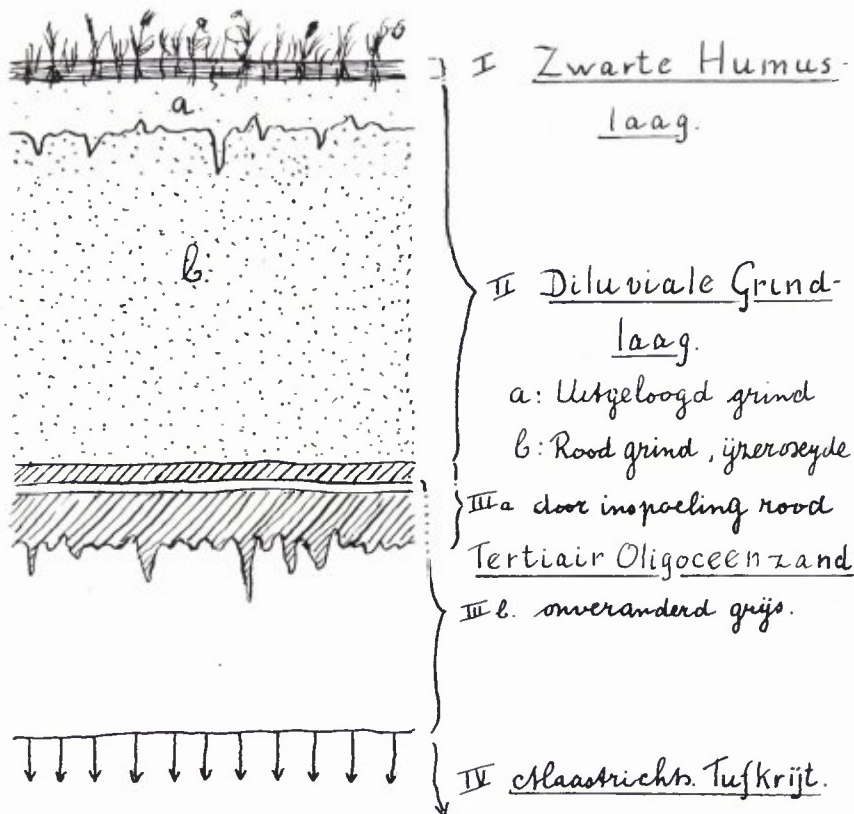 I Zwarte Humus-
laag.
a
b.
II Diluviale Grind-
laag.
a: Uitgeloogd grind
b: Rood grind, ijzeroxyde
III a door inspoeling rood
Tertiair Oligoceenzand
III b. onveranderd grijs.
IV Maastrichts. Tufkrijt.